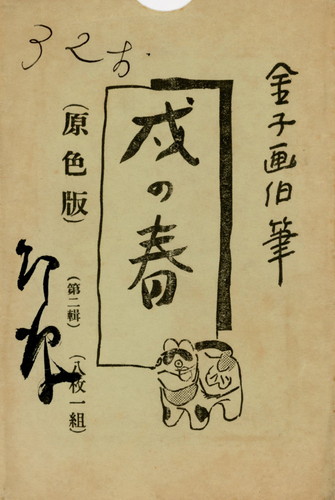 32お
金子画伯筆
戌の春
(原色版)
(第二輯) (八枚一組)